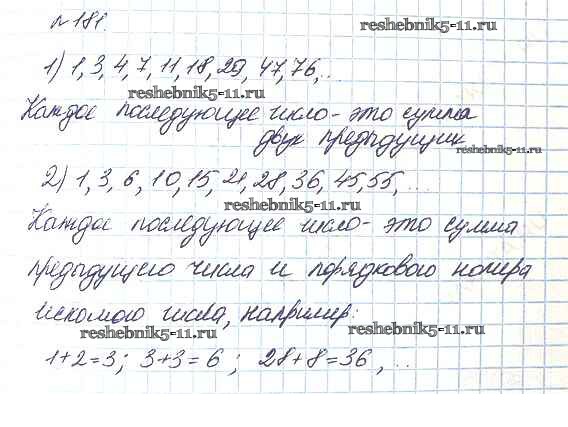 №181.
reshebnik5-11.ru
1) 1, 3, 4, 7, 11, 18, 29, 47, 76, ...
reshebnik5-11.ru
Каждое последующее число - это сумма
двух предыдущих
reshebnik5-11.ru
2) 1, 3, 6, 10, 15, 21, 28, 36, 45, 55, ...
reshebnik5-11.ru
Каждое последующее число - это сумма
предыдущего числа и порядкового номера
искомого числа, например:
reshebnik5-11.ru
reshebnik5-11.ru
1+2=3; 3+3=6; 28+8=36, ...